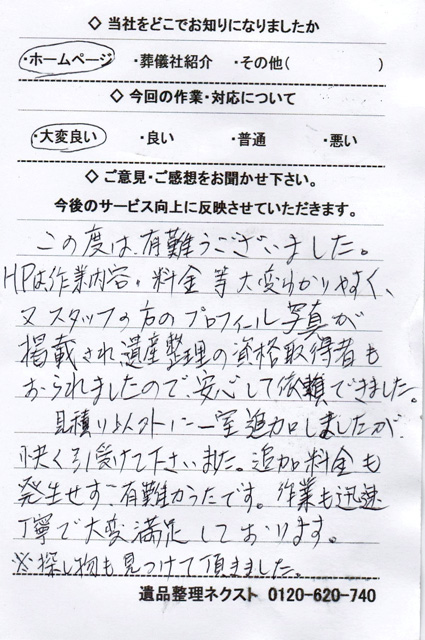 ◇ 当社をどこでお知りになりましたか
・ホームページ ・葬儀社紹介 ・その他( )
◇ 今回の作業・対応について
・大変良い ・良い ・普通 ・悪い
◇ ご意見・ご感想をお聞かせ下さい。
今後のサービス向上に反映させていただきます。
この度は有難うございました。
HPは作業内容・料金等大変わかりやすく、
又スタッフの方のプロフィール写真が
掲載され遺産整理の資格取得者も
おられましたので、安心して依頼できました。
見積り以外に一室追加しましたが
快く引受けて下さいました。追加料金も
発生せずこ有難かったです。作業も迅速
丁寧で大変満足しております。
※探し物も見つけて頂きました。
遺品整理ネクスト 0120-620-740